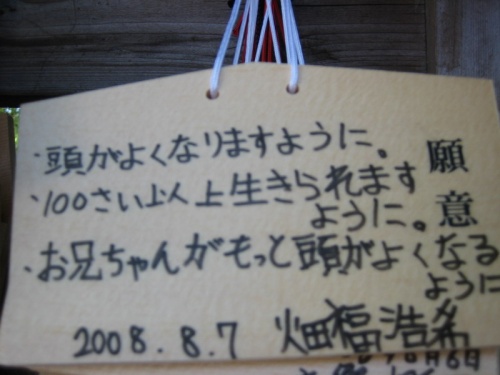 願意
・頭がよくなりますように。
・100さい以上生きられます
ように。
・お兄ちゃんがもっと頭がよくなる
ように
2008.8.7 畑福浩希
月6日